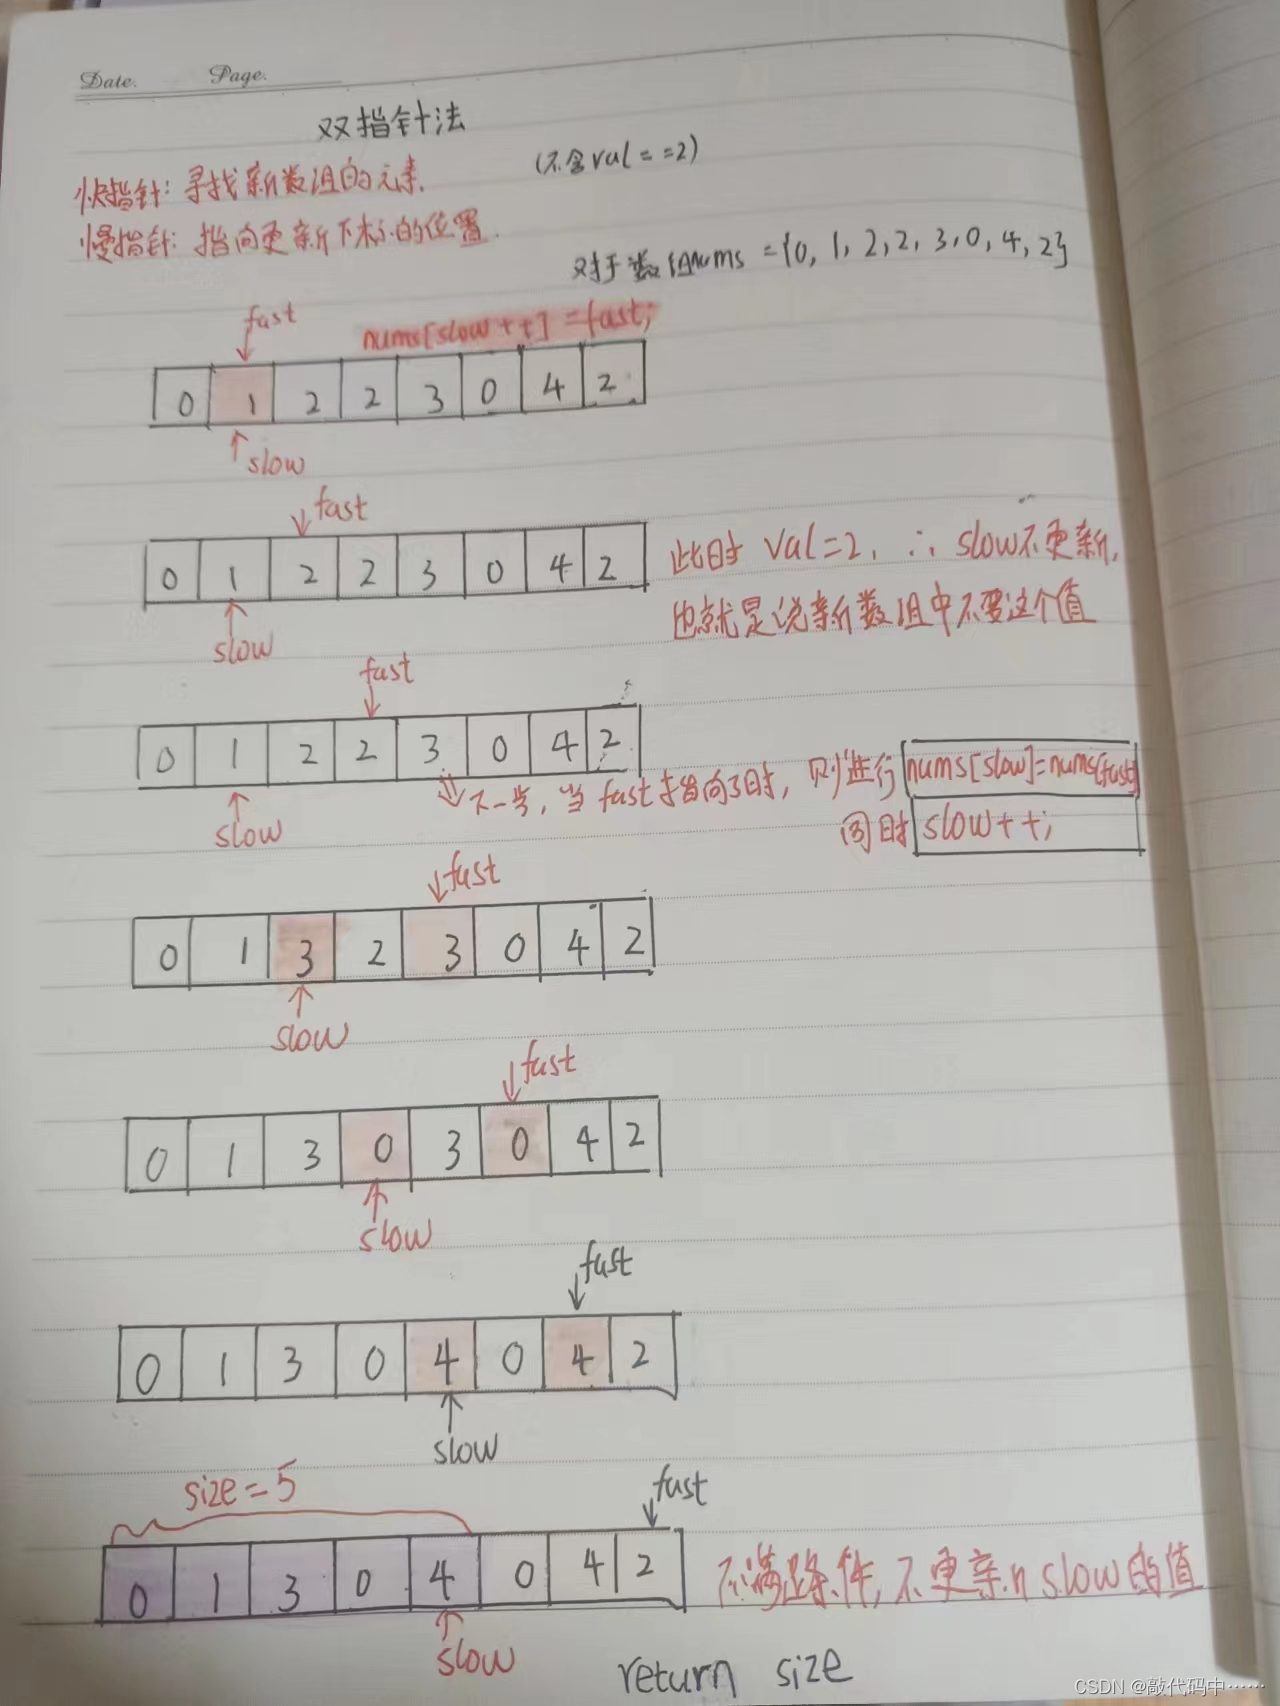 Date. Page.
双指针法
(不含val==2)
快指针: 寻找新数组的元素.
慢指针: 指向更新下标的位置.
对于数组nums = {0, 1, 2, 2, 3, 0, 4, 2}
fast
nums[slow++] = fast;
0 1 2 2 3 0 4 2
slow
fast
0 1 2 2 3 0 4 2
此时 val=2, ∴ slow不更新,
slow
也就是说新数组中不要这个值
fast
0 1 2 2 3 0 4 2
下一步, 当 fast 指向3时, 则进行 nums[slow]=nums[fast]
slow
同时 slow++;
fast
0 1 3 2 3 0 4 2
slow
fast
0 1 3 0 3 0 4 2
slow
fast
0 1 3 0 4 0 4 2
slow
size=5
fast
0 1 3 0 4 0 4 2
不满足条件, 不更新 slow 的值
slow
return size
CSDN @敲代码中······